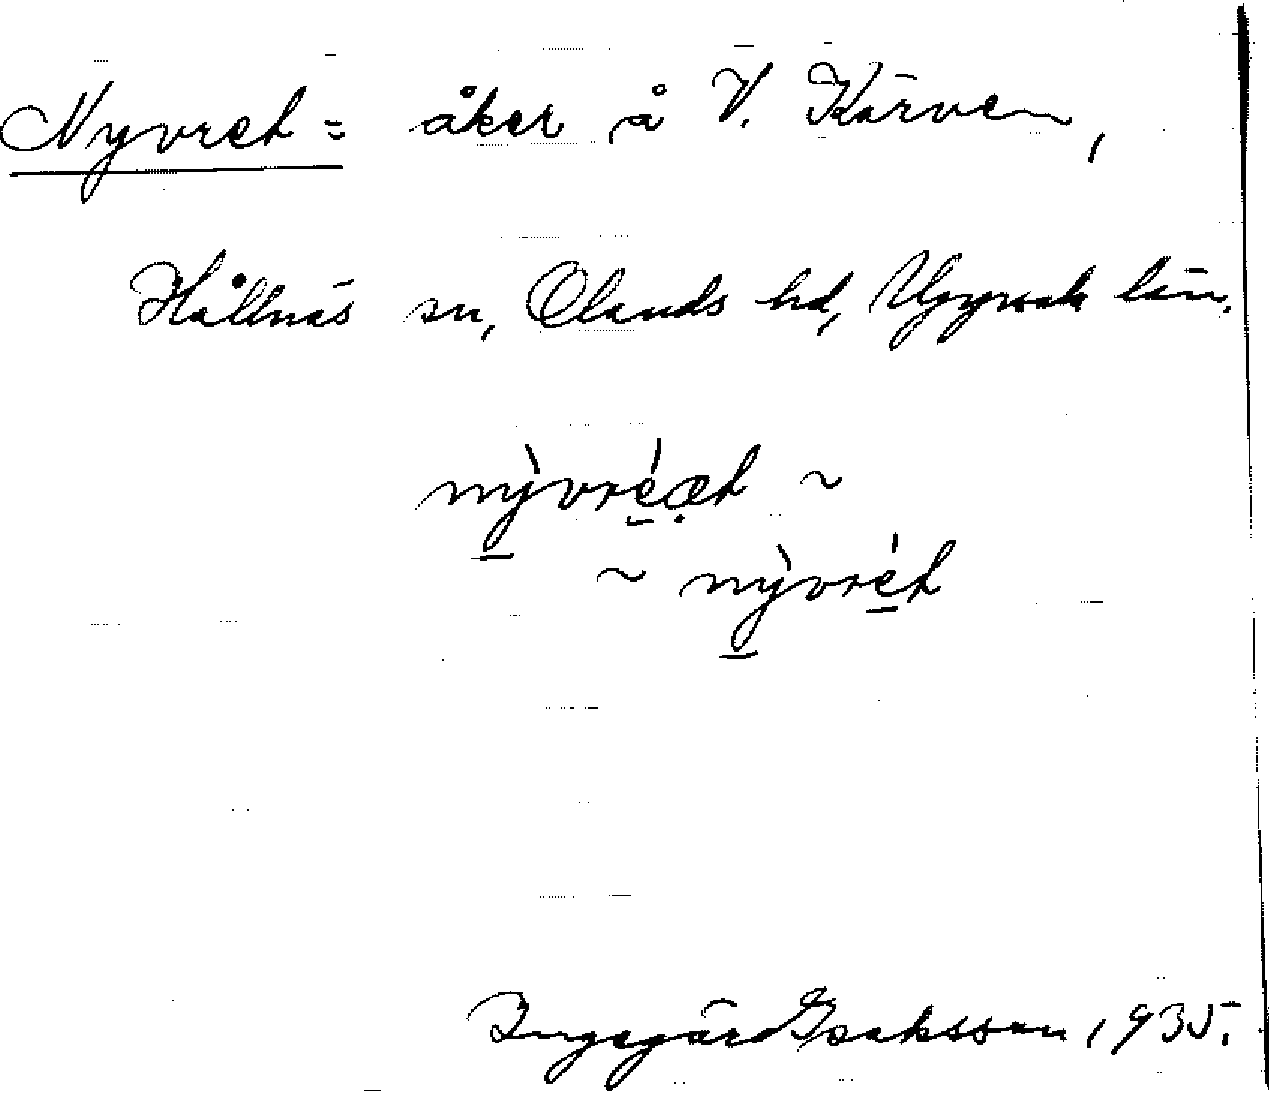 Nyvret = åker å V. Kärven,
Hållnäs sn, Olands hd, Uppsala län.
nỳ̲vré̲æ̣t ~
~ nỳ̲vré̲t
Ingegärd Isaksson, 1935.